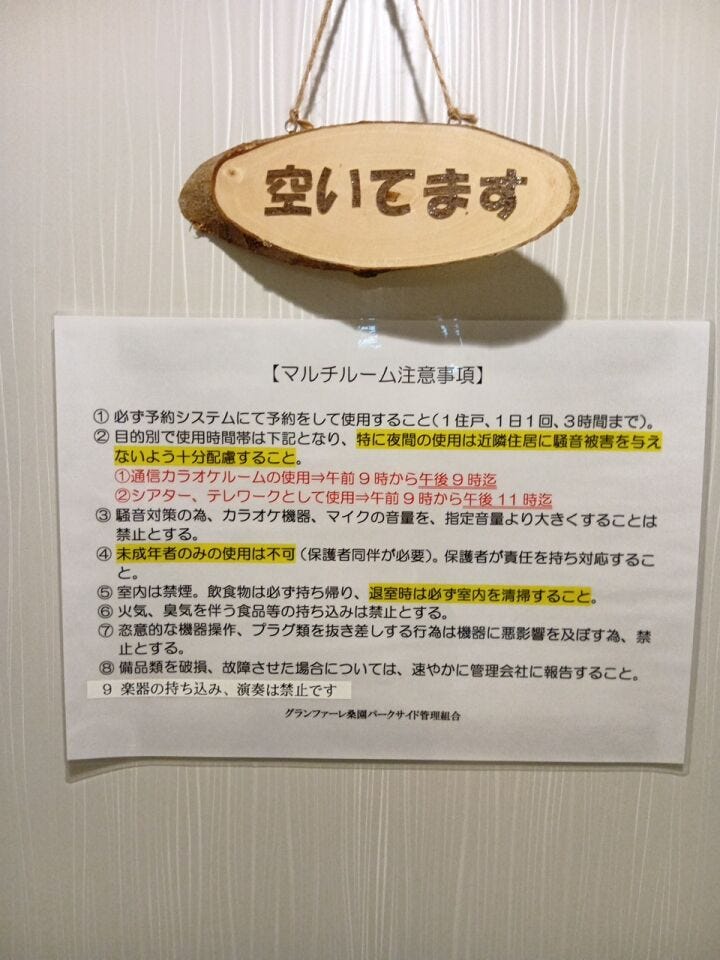 空いてます
【マルチルーム注意事項】
① 必ず予約システムにて予約をして使用すること(1住戸、1日1回、3時間まで)。
② 目的別で使用時間帯は下記となり、特に夜間の使用は近隣住居に騒音被害を与え
ないよう十分配慮すること。
①通信カラオケルームの使用⇒午前9時から午後9時迄
②シアター、テレワークとして使用⇒午前9時から午後11時迄
③ 騒音対策の為、カラオケ機器、マイクの音量を、指定音量より大きくすることは
禁止とする。
④ 未成年者のみの使用は不可(保護者同伴が必要)。保護者が責任を持ち対応するこ
と。
⑤ 室内は禁煙。飲食物は必ず持ち帰り、退室時は必ず室内を清掃すること。
⑥ 火気、臭気を伴う食品等の持ち込みは禁止とする。
⑦ 恣意的な機器操作、プラグ類を抜き差しする行為は機器に悪影響を及ぼす為、禁
止とする。
⑧ 備品類を破損、故障させた場合については、速やかに管理会社に報告すること。
9 楽器の持ち込み、演奏は禁止です
グランファーレ桑園パークサイド管理組合